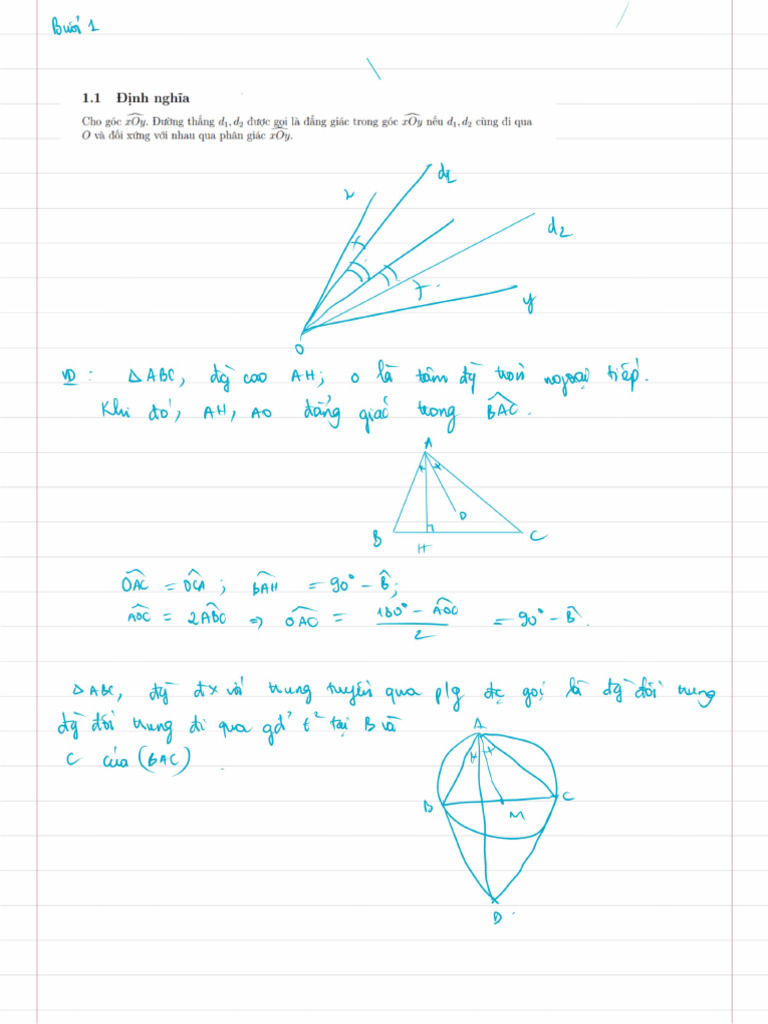 Buổi 1
1.1 Định nghĩa
Cho góc xOy. Đường thẳng d₁, d₂ được gọi là đẳng giác trong góc xOy nếu d₁, d₂ cùng đi qua
O và đối xứng với nhau qua phân giác xOy.
x
d1
d2
y
O
VD : △ABC, đg cao AH; O là tâm đg tròn ngoại tiếp.
Khi đó, AH, AO đẳng giác trong BAC.
A
O
B
H
C
OAC = OCA ; BAH = 90° - B;
AOC = 2ABC => OAC = (180° - AOC)/2 = 90° - B.
△ABC, đg đx với trung tuyến qua p/g đc gọi là đg đối trung
đg đối trung đi qua gđ' t² tại B và
C của (BAC)
A
B
C
M
D